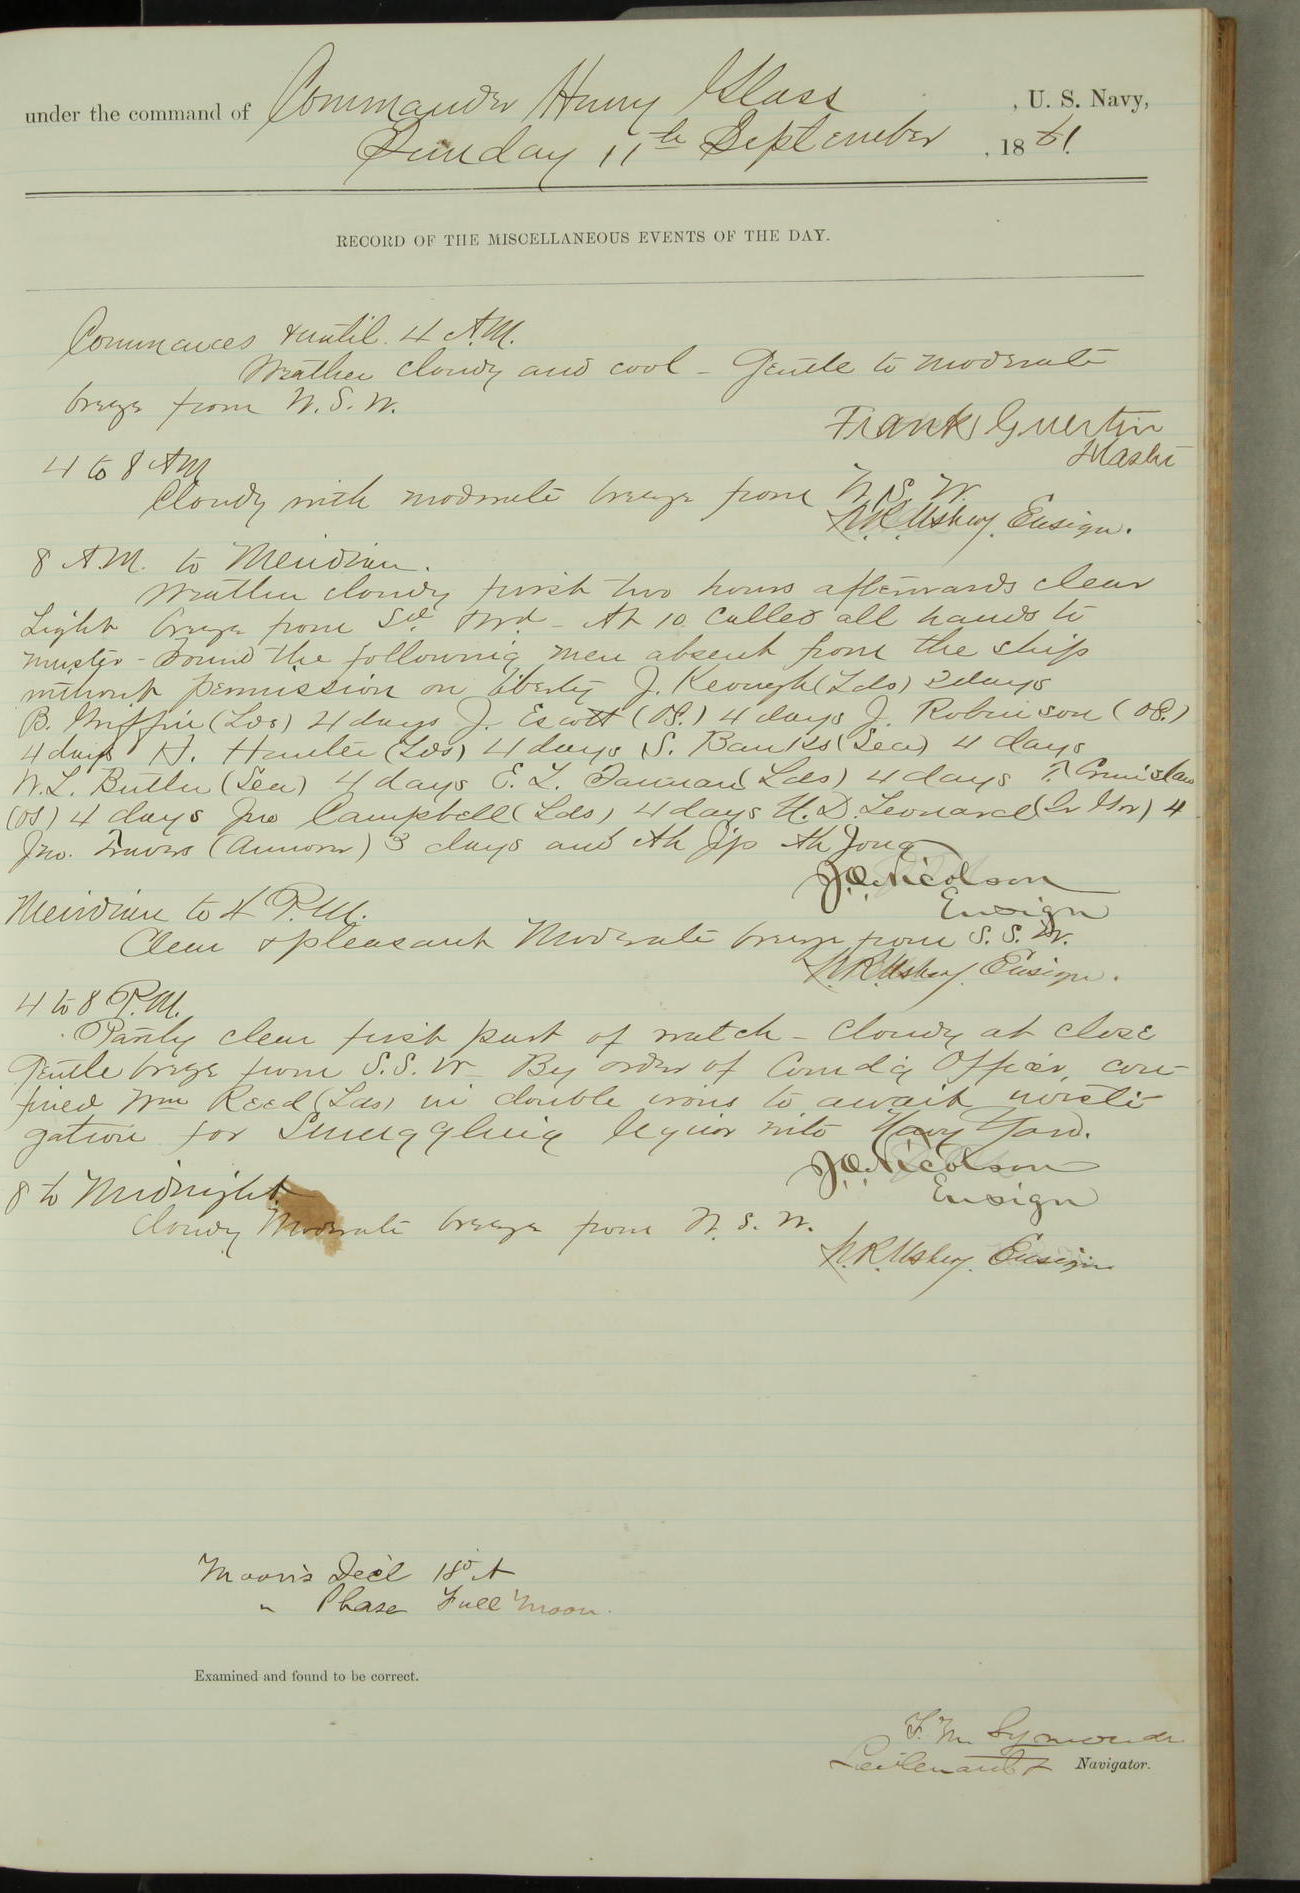 under the command of Commander Henry Glass, U. S. Navy,
Sunday 11th September, 1881.
RECORD OF THE MISCELLANEOUS EVENTS OF THE DAY.
Commences & until 4 A.M.
Weather cloudy and cool - Gentle to moderate
breeze from W.S.W.
Frank Guertin
Master
4 to 8 AM
Cloudy with moderate breeze from W.S.W.
N.R. Usher, Ensign.
8 A.M. to Meridian.
Weather cloudy first two hours afterwards clear
Light breeze from Sd & Wd - At 10 called all hands to
muster - Found the following men absent from the ship
without permission on liberty J. Keough (Lds) 2 days
B. Griffin (Lds) 4 days J. Escott (OS.) 4 days J. Robinson (OS.)
4 days H. Hunter (Lds) 4 days S. Banks (Sea) 4 days
W.L. Butler (Sea) 4 days E. L. (Lds) 4 days
(OS) 4 days Jno Campbell (Lds) 4 days H. D. Leonard 4
Jno. Travers (Armorer) 3 days and Ah Jip Ah Jong
J.O. Nicolson
Ensign
Meridian to 4 P.M.
Clear & pleasant Moderate breeze from S. S. W.
N.R. Usher, Ensign.
4 to 8 P.M.
Partly clear first part of watch - cloudy at close
Gentle breeze from S.S.W. By order of Comd'g Officer, con-
fined Wm Reed (Lds) in double irons to await investi-
gation for Smuggling liquor into Navy Yard.
J.O. Nicolson
Ensign
8 to Midnight
Cloudy Moderate breeze from W. S. W.
N.R. Usher, Ensign
Moon's Decl
" Phase Full Moon.
Examined and found to be correct.
F. M. Symonds
Lieutenant Navigator.